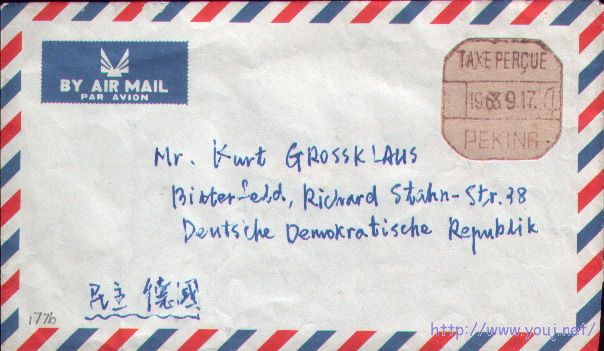 BY AIR MAIL
PAR AVION
TAXE PERÇUE
1963 9.17.
PEKING
Mr. Kurt GROSSKLAUS
Bitterfeld, Richard Stahn-Str. 38
Deutsche Demokratische Republik
民主 德國
1776
http://www.youj.net/